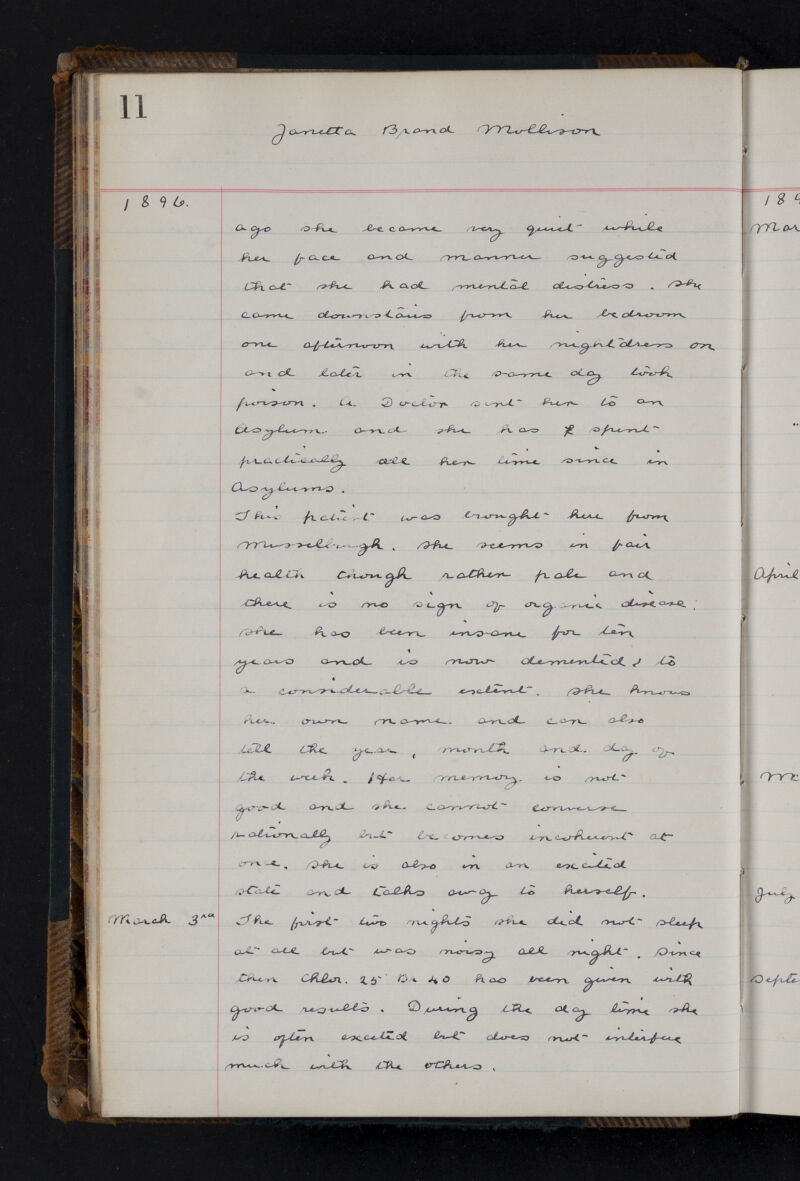 11
Janetta Brand Mollison
1896.
ago she became very quiet while
her face and manner suggested
that she had mental distress. She
came downstairs from her bedroom
one afternoon with her nightdress on
and later in the same day took
poison. A Doctor sent her to an
Asylum and she has spent
practically all her time since in
Asylums.
This patient was brought here from
Musselburgh. She seems in fair
health though rather pale and
there is no sign of organic disease.
She has been insane for ten
years and is now demented to
a considerable extent. She knows
her own name and can also
tell the year, month and day of
the week. Her memory is not
good and she cannot converse
rationally but becomes incoherent at
once. She is also in an excited
state and talks away to herself.
March 3rd The first two nights she did not sleep
at all but was noisy all night. Since
then Chlor. 25 Br 40 has been given with
good results. During the day time she
is often excited but does not interfere
much with the others.
189
Mar
April
July
Septe